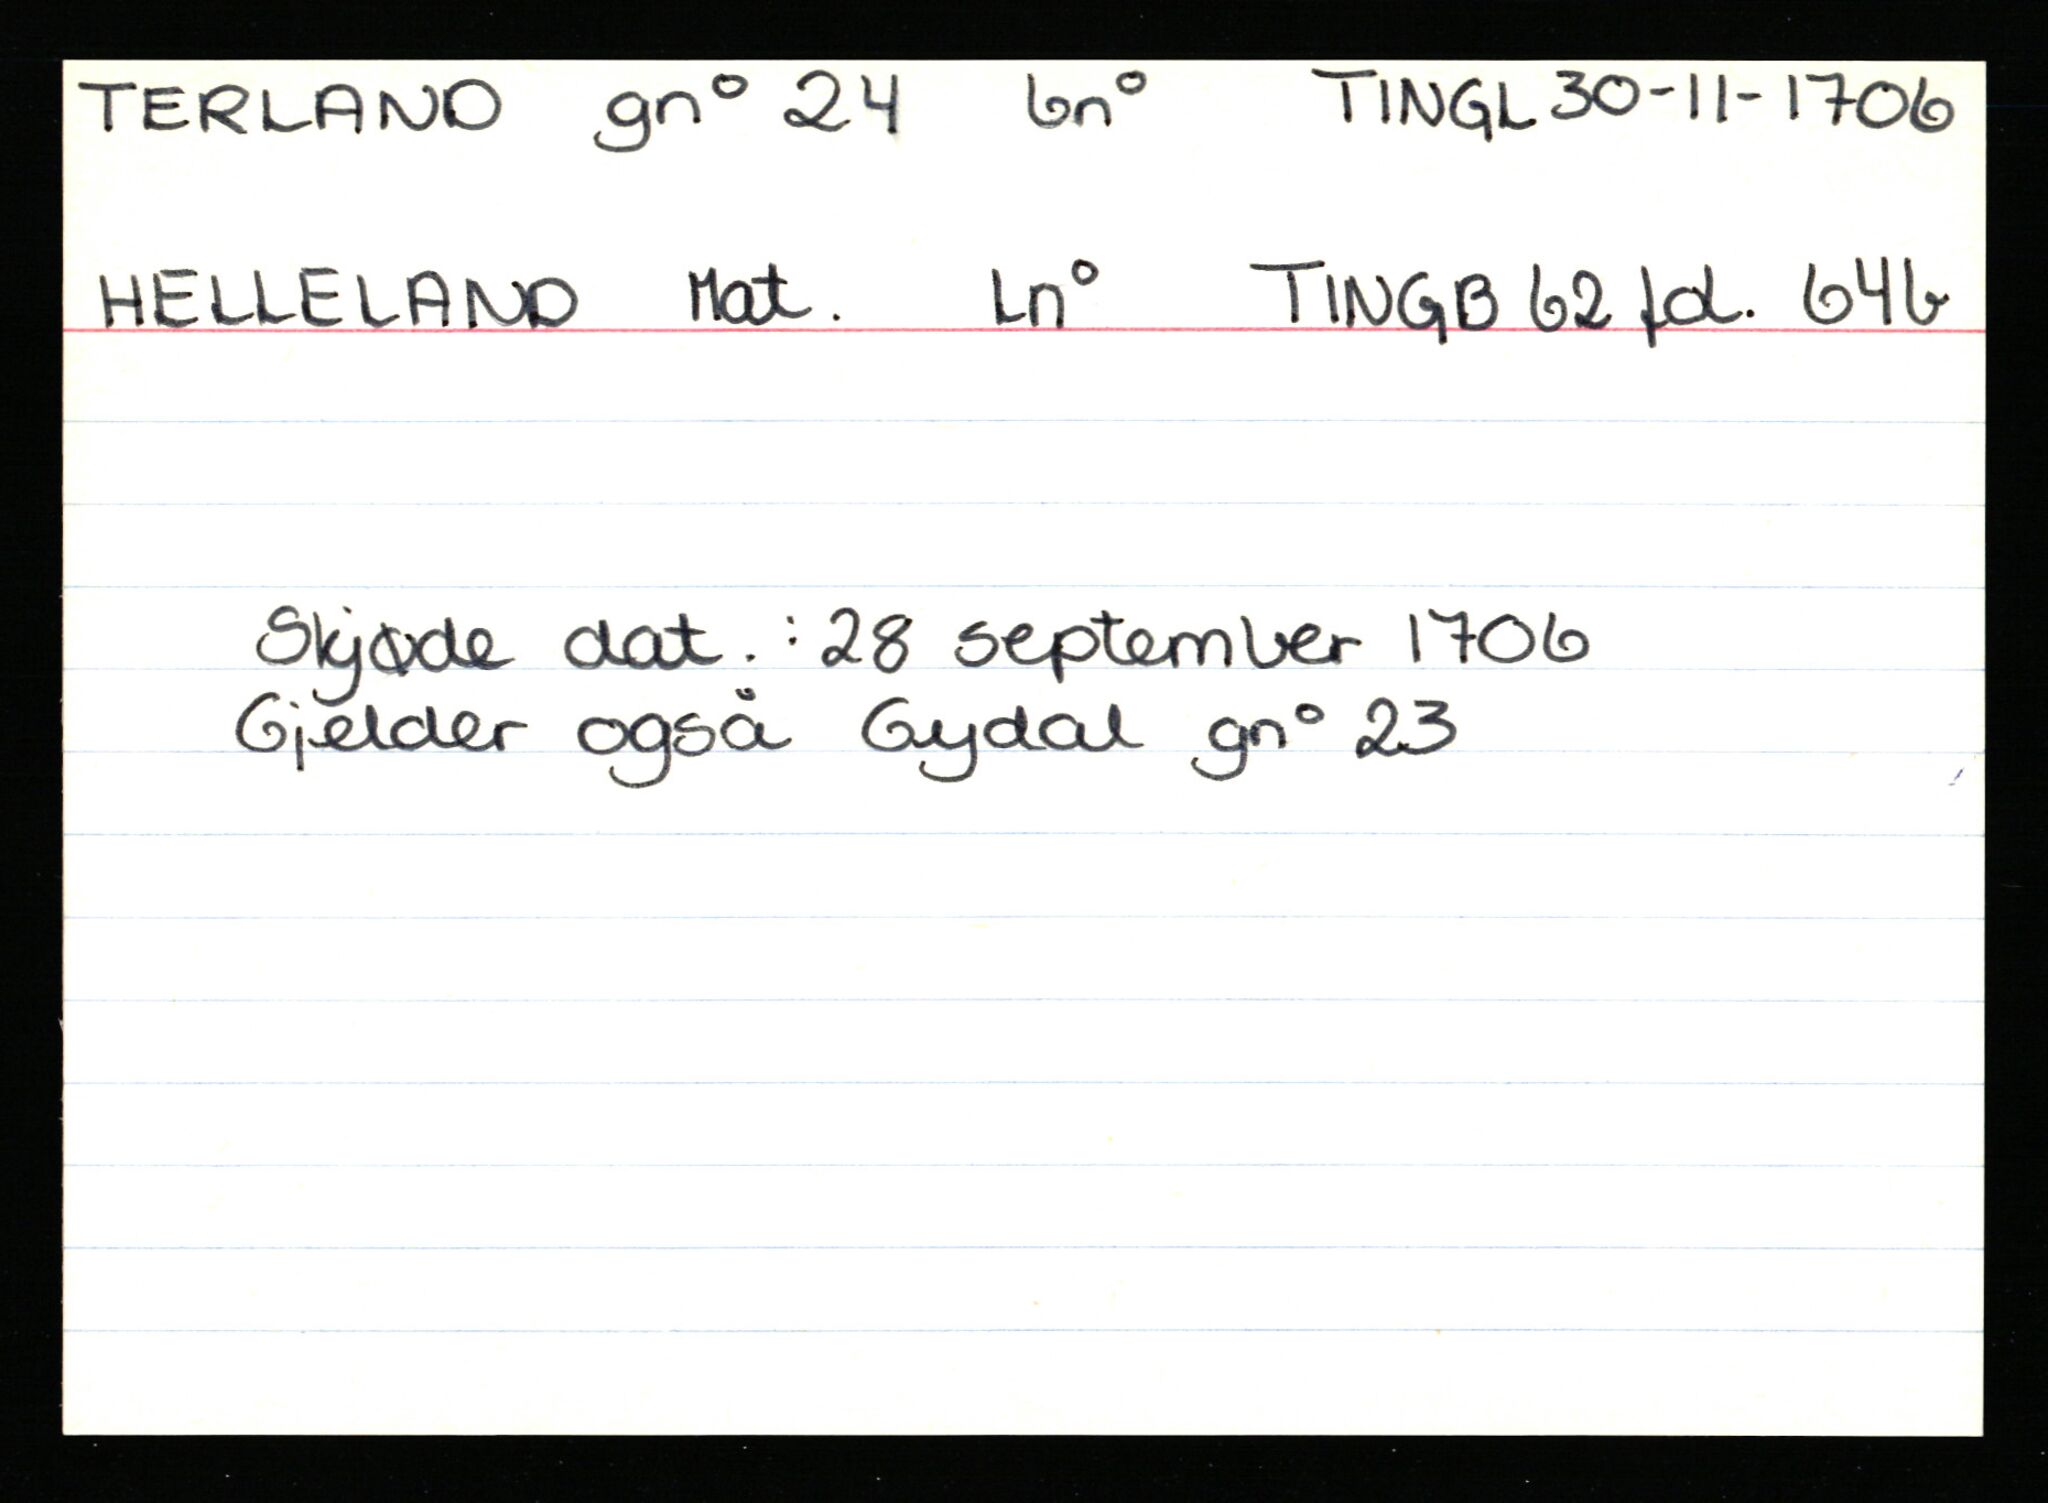 TERLAND gn° 24 bn° TINGL 30-11-1706
HELLELAND Mat. Ln° TINGB 62 fol. 64b
Skjøde dat.: 28 september 1706
Gjelder også Gydal gn° 23